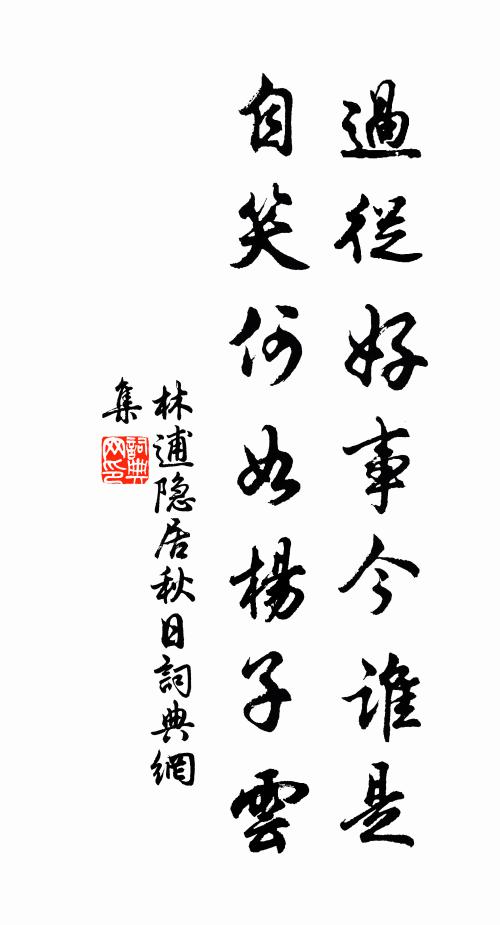 過從好事今誰是
自笑何如楊子雲
林逋隐居秋日詞典網
集
詞典
网印